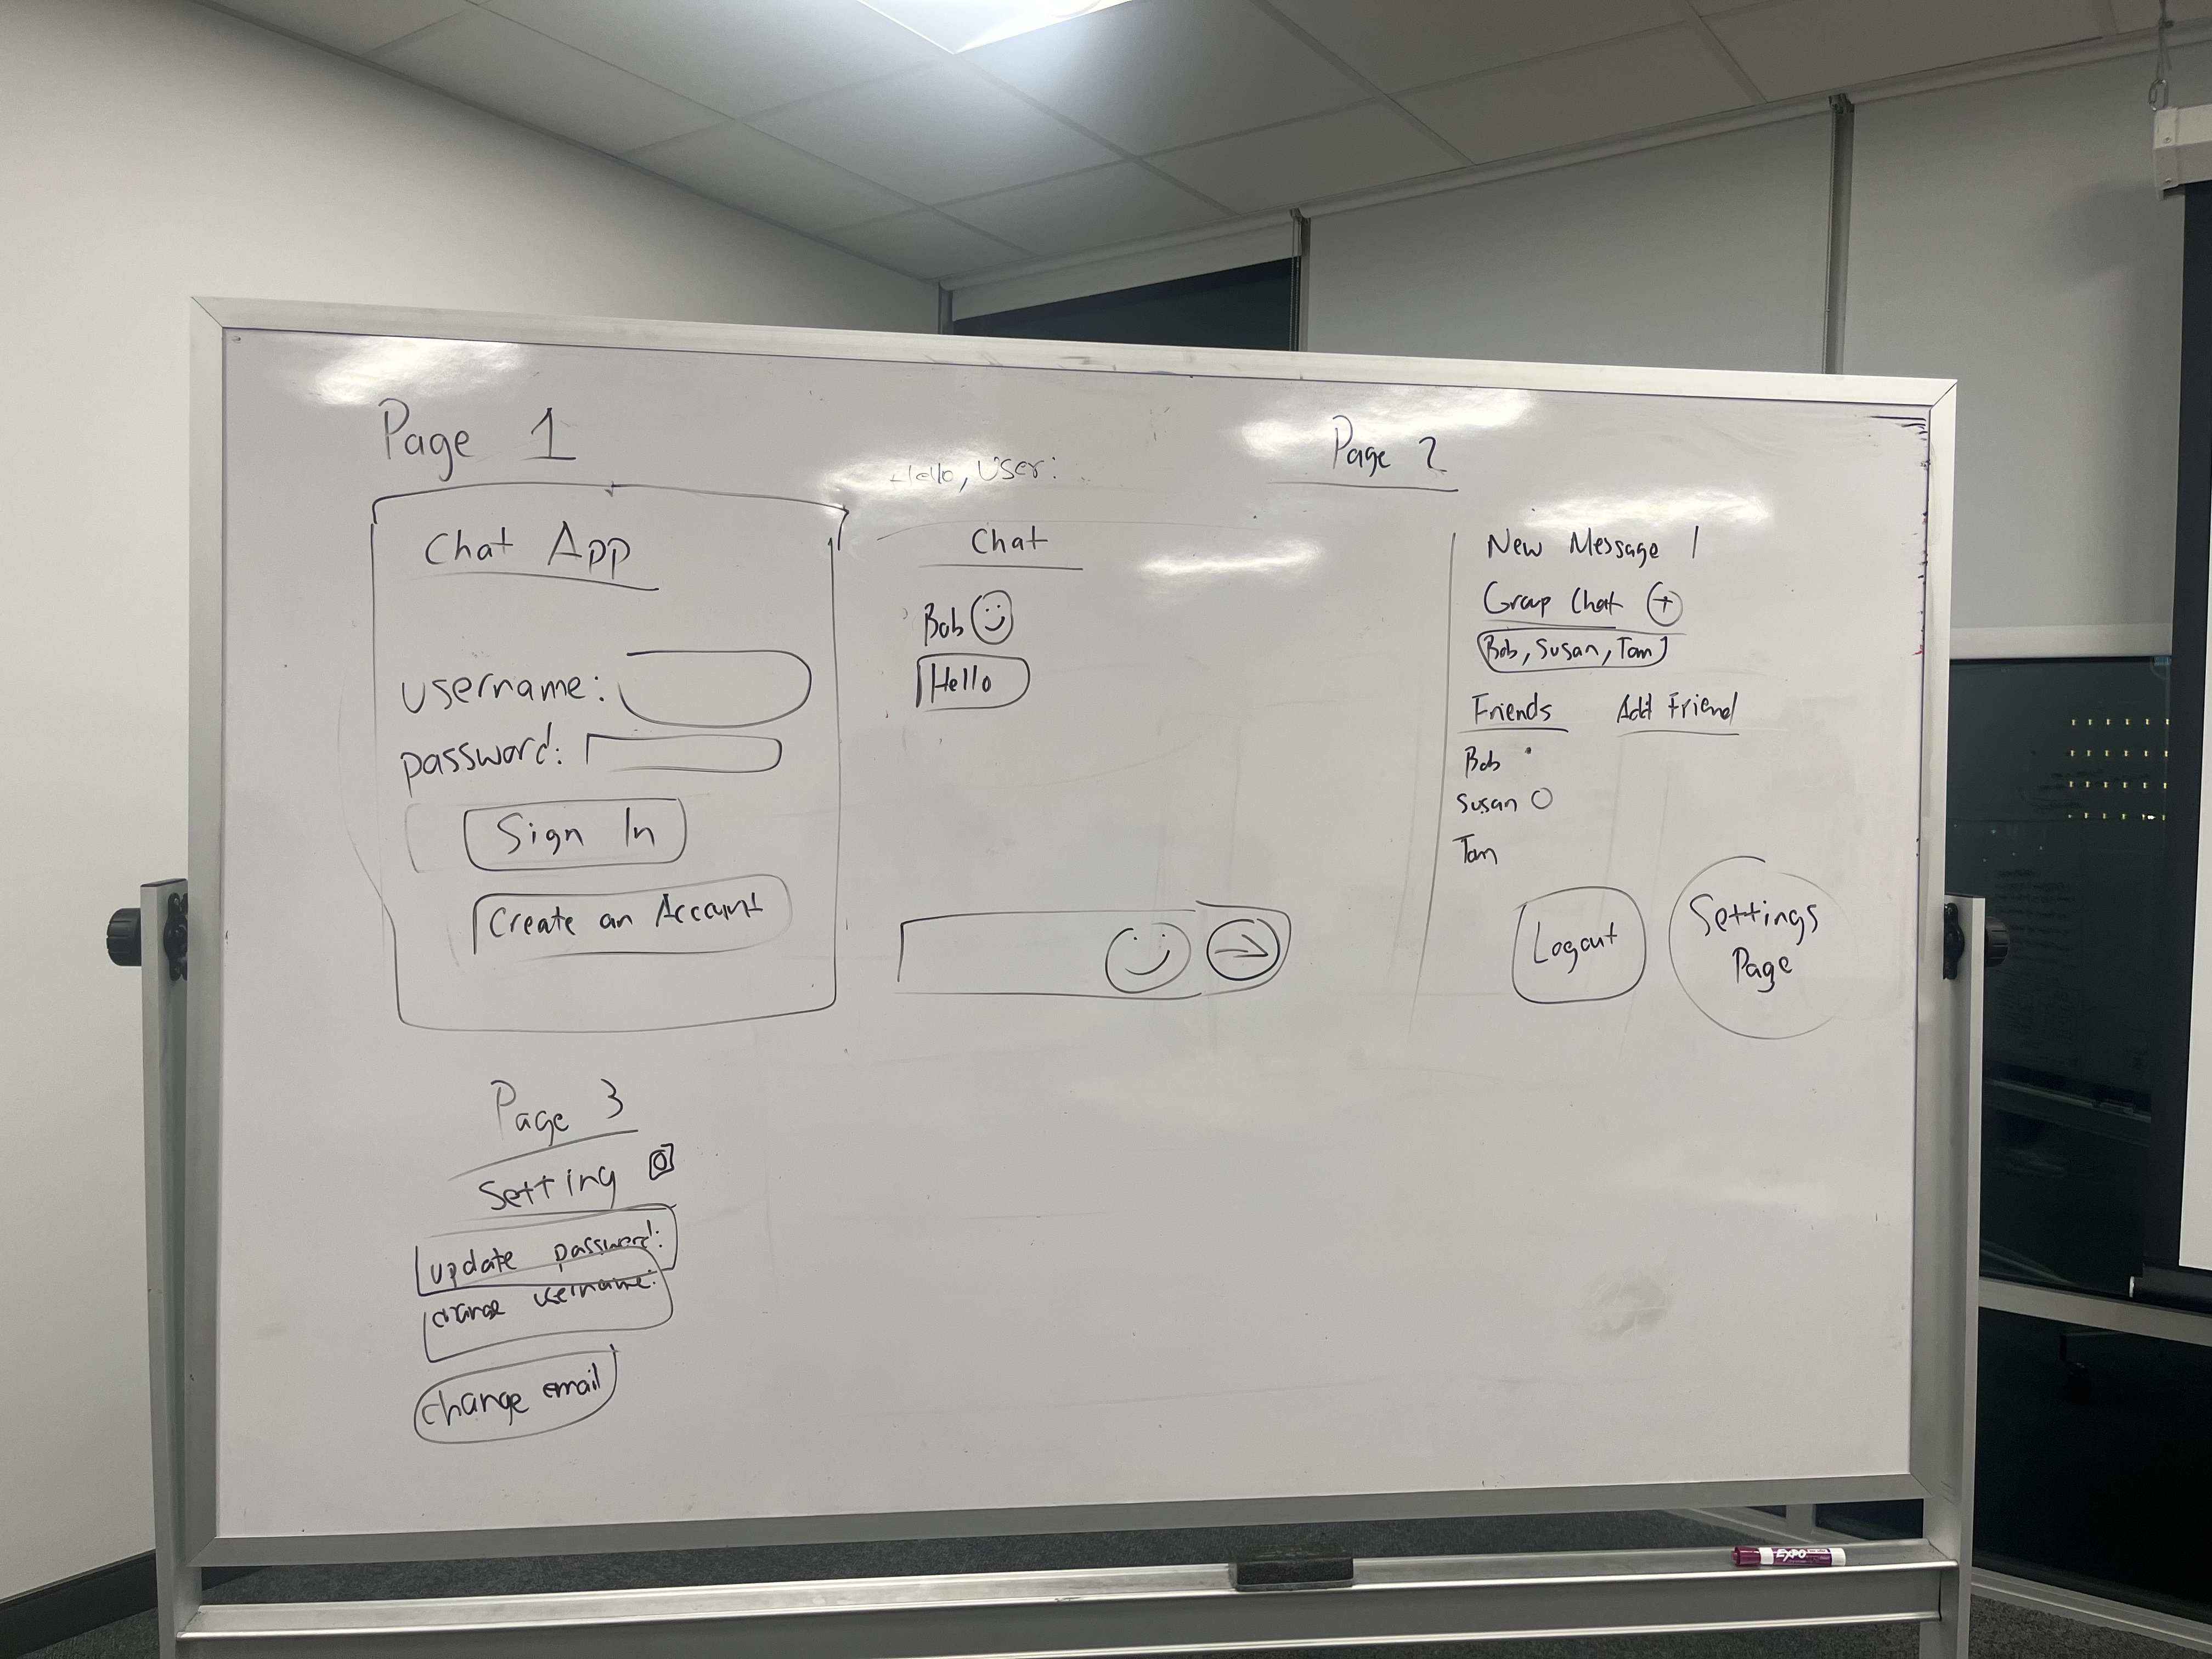 Page 1
Chat App
username:
password:
Sign In
Create an Account
Page 2
Hello, User:
Chat
Bob
Hello
New Message
Group Chat +
Bob, Susan, Tom
Friends Add Friend
Bob
Susan
Tom
Logout
Settings
Page
Page 3
Setting
update password:
change username:
change email
EXPO